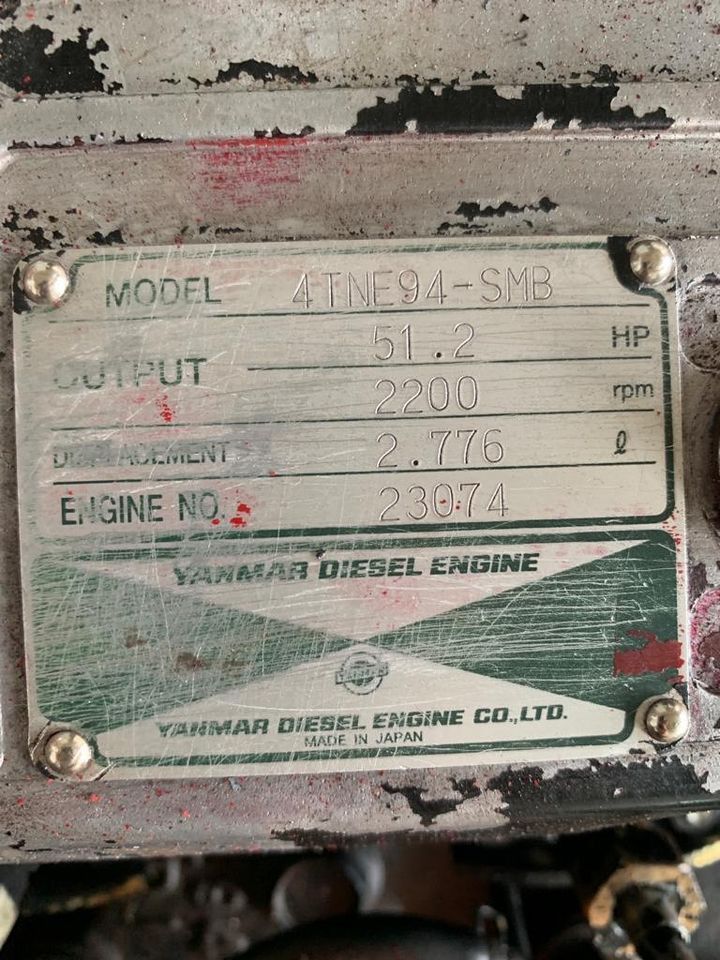 MODEL 4TNE94-SMB
OUTPUT 51.2 HP
2200 rpm
DISPLACEMENT 2.776 ℓ
ENGINE NO. 23074
YANMAR DIESEL ENGINE
YANMAR DIESEL ENGINE CO.,LTD.
MADE IN JAPAN